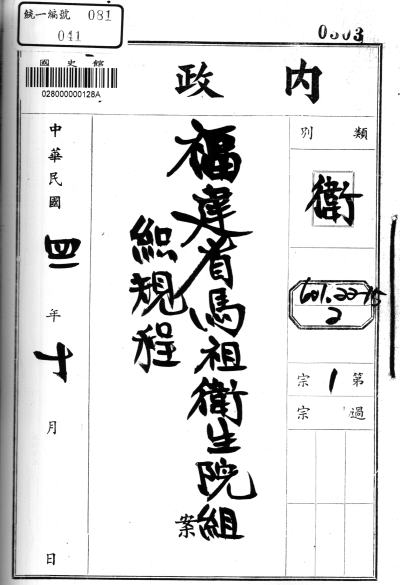 統一編號 081
041
0303
國史館
028000000128A
內政
類別
衛
601.22-15
2
第1宗
過宗
福建省馬祖衛生院組
織規程
案
中華民國四一年十月 日